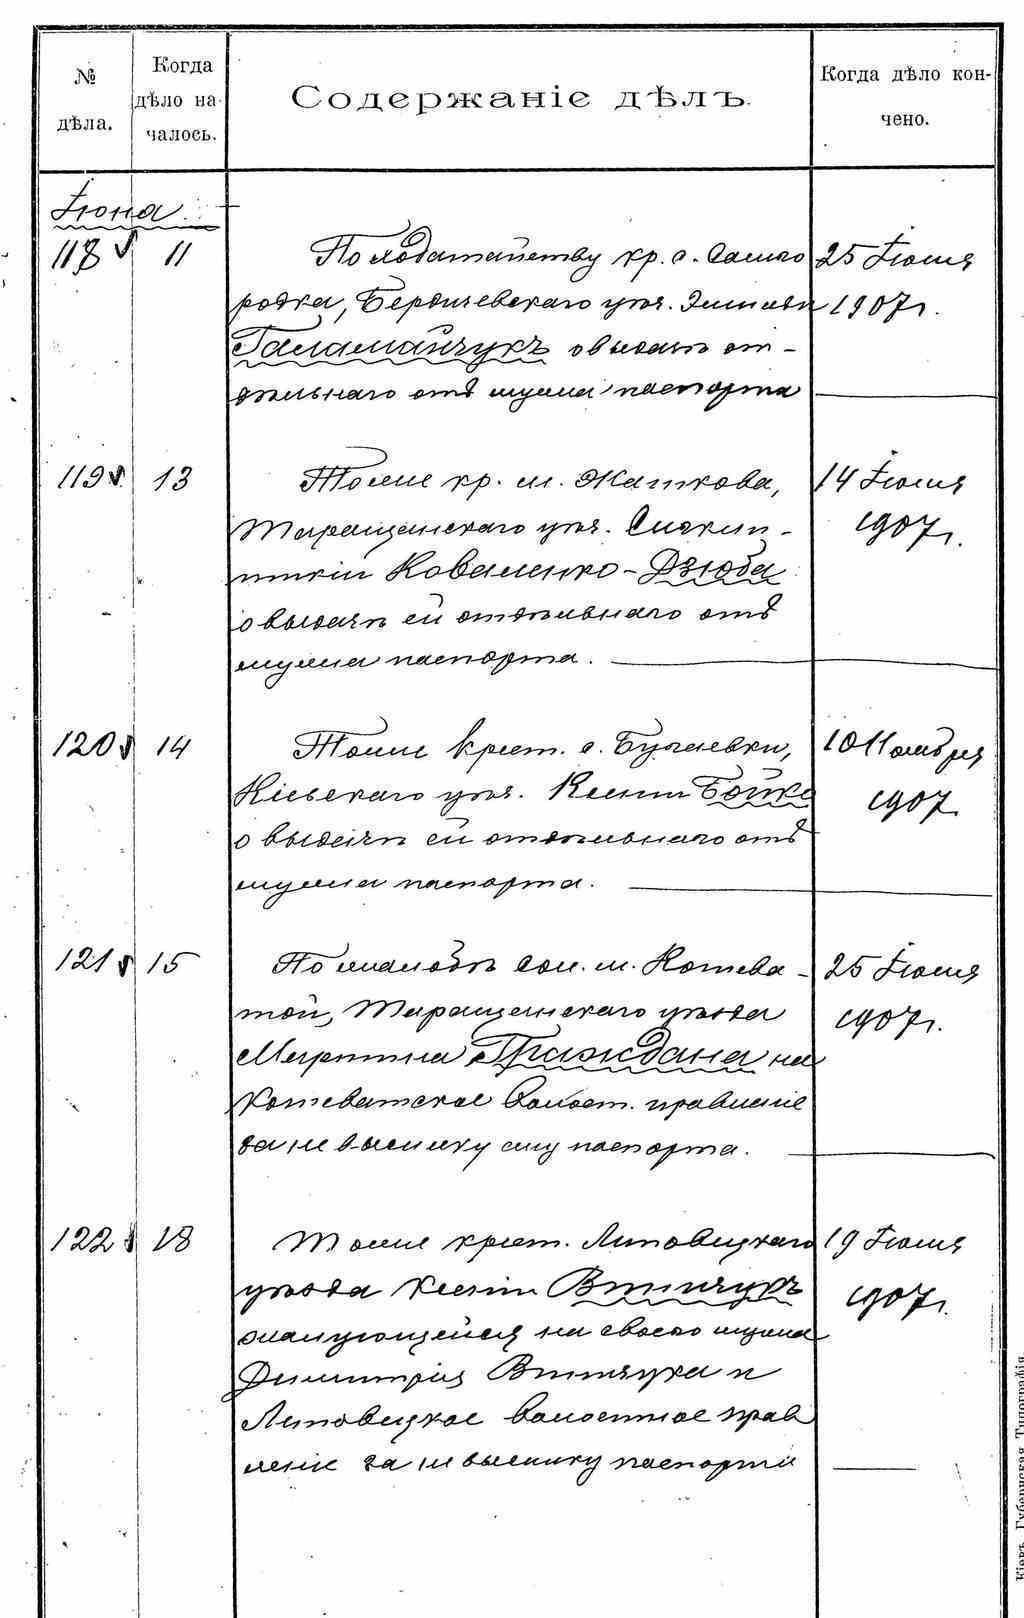 № дѣла.
Когда дѣло началось.
Содержаніе дѣлъ.
Когда дѣло кончено.
Іюня
118 11 По ходатайству кр. с. Самго 25 Іюня
родка, Бердичевскаго уѣз. 1907г.
Галаманчукъ о выдачѣ от-
дѣльнаго отъ мужа паспорта
119 13 Тоже кр. м. Жашкова, 14 Іюня
Таращанскаго уѣз. 1907г.
Коваленко-Дзюба
о выдачѣ ей отдѣльнаго отъ
мужа паспорта.
120 14 Тоже крест. с. Бугаевки, 10 Ноября
Кіевскаго уѣз. Ксеніи Бойко 1907
о выдачѣ ей отдѣльнаго отъ
мужа паспорта.
121 15 По жалобѣ сол. м. Кошева- 25 Іюня
той, Таращанскаго уѣзда 1907г.
Мартина Граждана на
Кошеватское волост. правленіе
за не высылку ему паспорта.
122 18 Тоже крест. Липовецкаго 19 Іюня
уѣзда Ксеніи Втинчукъ 1907г.
жалующейся на своего мужа
Димитрія и
Липовецкое волостное прав
леніе за не высылку паспорта
Кіевъ. Губернская Типографія.